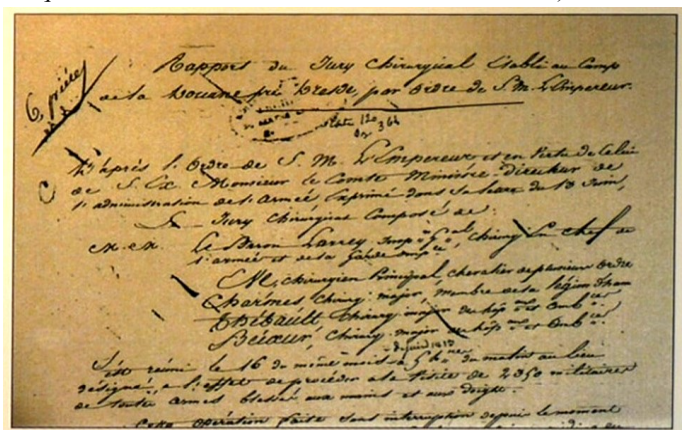 6 pièces
Rapport du Jury Chirurgical Etabli au Camp
de la Douane près Dresde, par Ordre de S. M. L'Empereur.
D'après l'Ordre de S. M. L'Empereur et en Vertu de Celui
de S. Ex Monsieur le Comte Ministre-Directeur de
l'administration de l'armée, Exprimé dans Sa lettre du 13 Juin,
Le Jury Chirurgical Composé de
M.M. Le Baron Larrey, Insp. Gal, Chirurg. En Chef de
l'armée et de la Garde Imp.
Chirurgien Principal, chevalier de plusieurs Ordres
Charmes Chirurg. major, membre de la légion d'hon
Thébault, Chirurg. major
Chirurg. major
de juin 1813
S'est réuni le 16 du même mois à 5 h du matin au lieu
désigné, à l'effet de procéder à la Visite de 2350 militaires
de toutes armes blessés aux mains et aux doigts.
Cette opération faite sans interruption depuis le moment